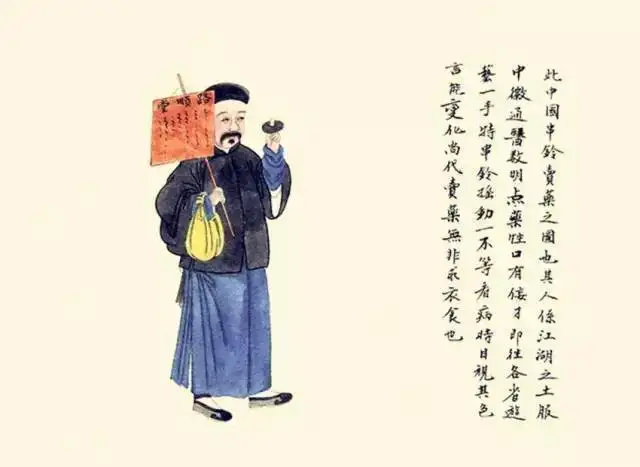 此中國串鈴賣藥之圖也其人係江湖之士服
中徹通醫数明点藥性口有倿才即往各省遊
藝一手持串鈴摇動一不等看病時目視其色
言能變化尚代賣藥無非求衣食也
路順堂